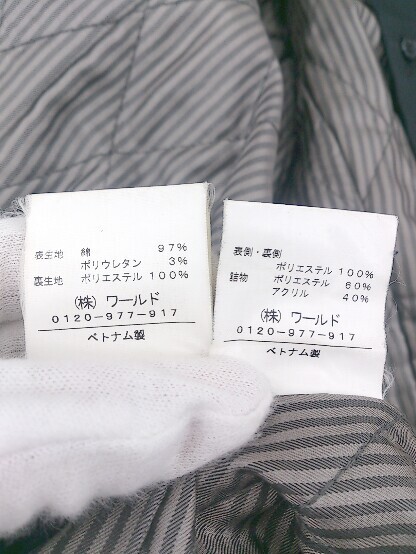 表生地 綿 97%
ポリウレタン 3%
裏生地 ポリエステル 100%
(株) ワールド
0120-977-917
ベトナム製
表側・裏側
ポリエステル 100%
詰物 ポリエステル 60%
アクリル 40%
(株) ワールド
0120-977-917
ベトナム製